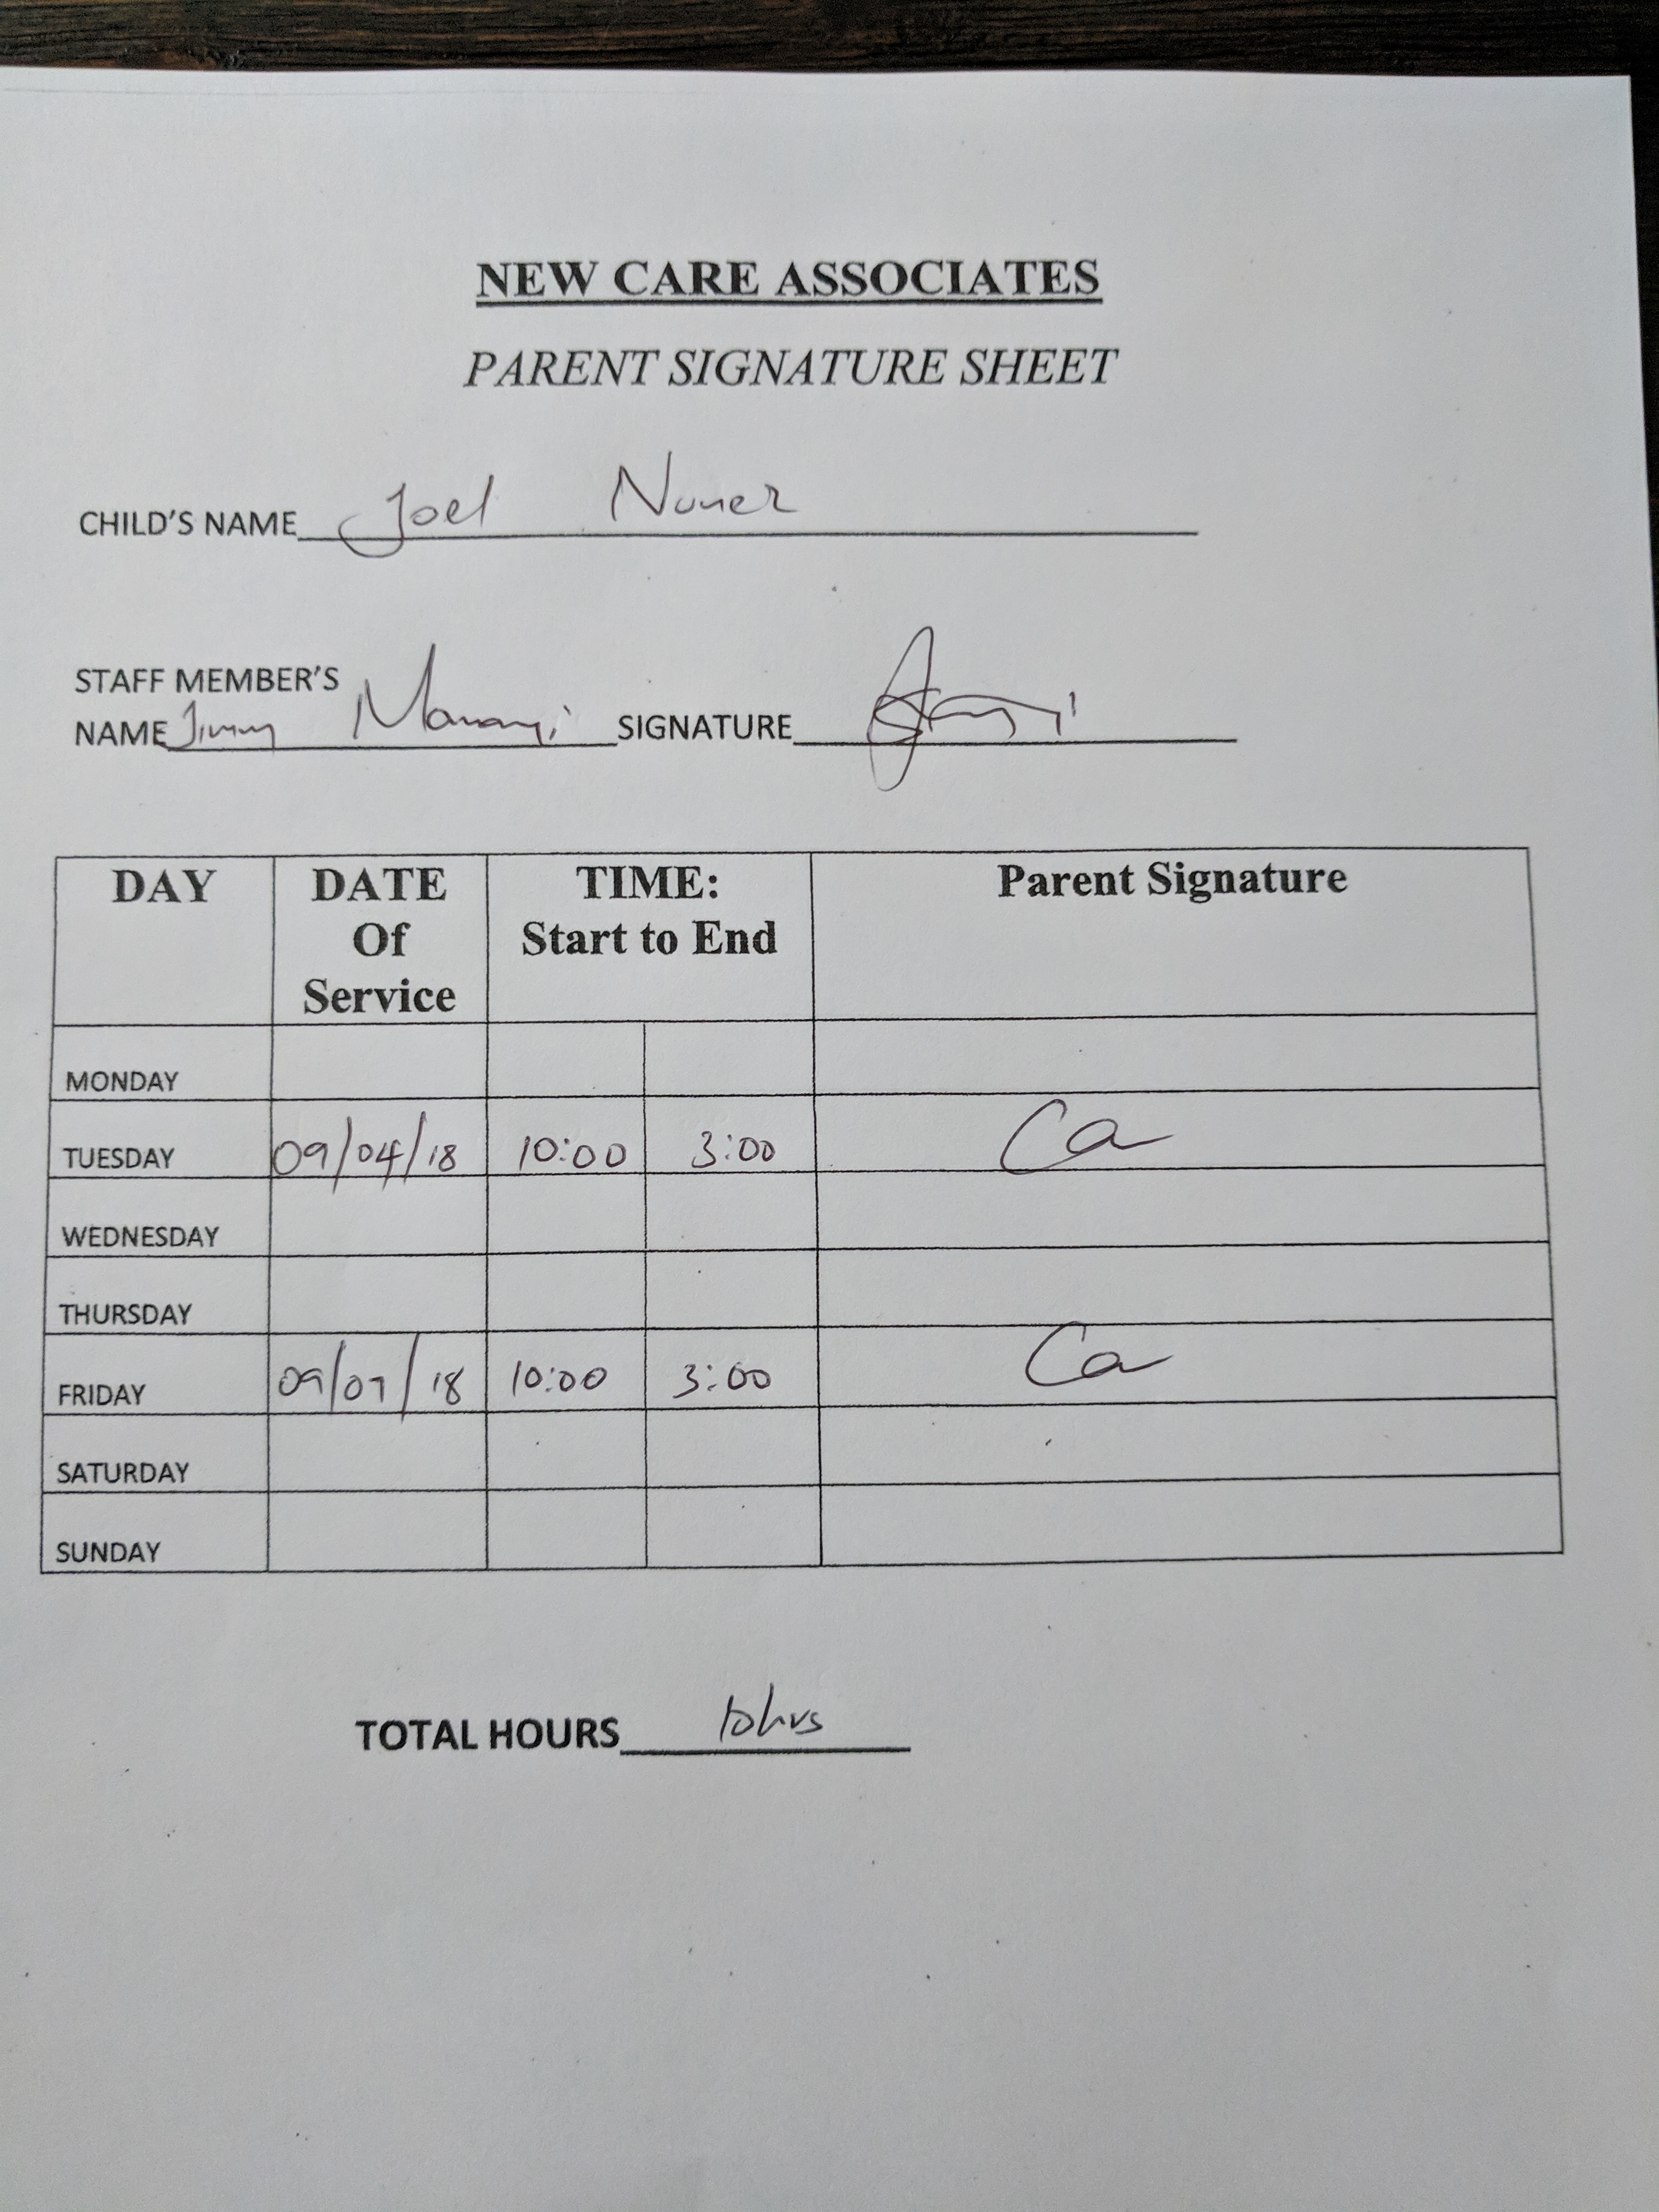 NEW CARE ASSOCIATES
PARENT SIGNATURE SHEET
CHILD'S NAME Joel Nunez
STAFF MEMBER'S
NAME Jimmy SIGNATURE
DAY DATE Of Service TIME: Start to End Parent Signature
MONDAY
TUESDAY 09/04/18 10:00 3:00
WEDNESDAY
THURSDAY
FRIDAY 09/07/18 10:00 3:00
SATURDAY
SUNDAY
TOTAL HOURS 10hrs